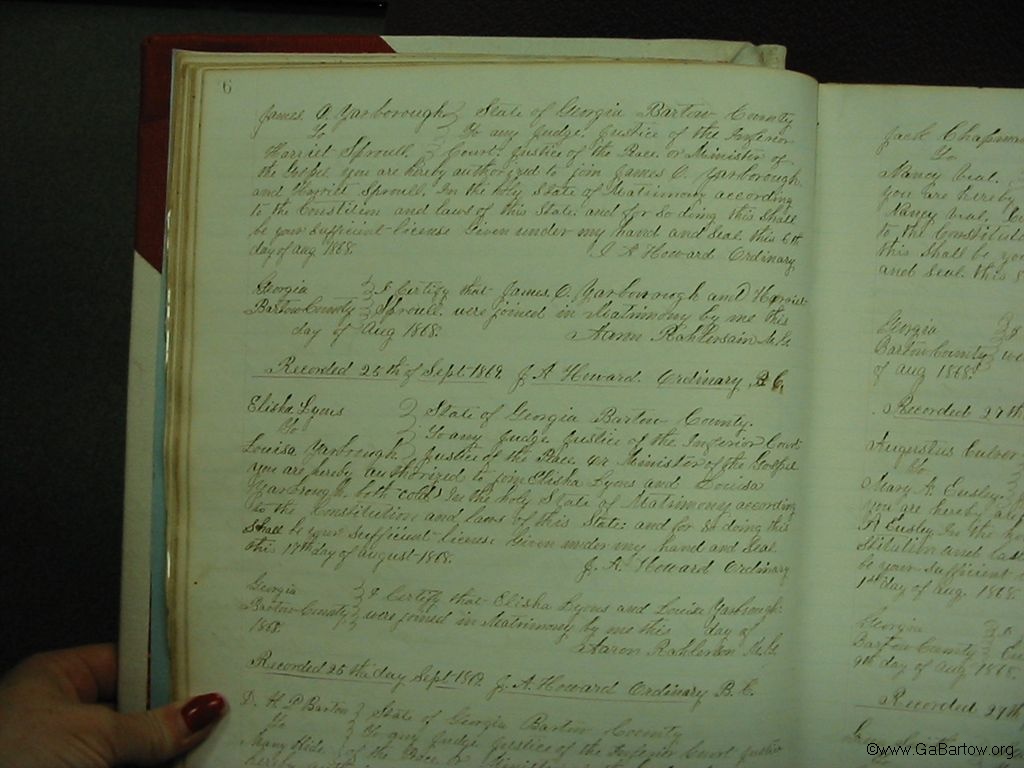 6
James O. Yarborough } State of Georgia Bartow County
To } To any Judge, Justice of the Inferior
Harriet Sproull. } Court. Justice of the Peace. or Minister of
the Gospel you are hereby authorized to join James O. Yarborough.
and Harriet Sproull. In the holy State of Matrimony according
to the Constition and laws of this State. and for so doing this Shall
be your Sufficient license Given under my hand and Seal this 6th
day of aug 1868. J A Howard Ordinary
Georgia } I Certify that James, O, Yarborough and Harriet
Bartow County } Sproull. were joined in Matrimony by me this
day of Aug 1868. Aaron M.G.
Recorded 25th of Sept. J. A Howard. Ordinary B. C,
Elisha Lyons } State of Georgia Bartow County.
To } To any Judge Justice of the Inferior Court
Louisa Yarbrough } Justice of the Peace or Minister of the Gospel
you are hereby authorized to join Elisha Lyons and Louisa
Yarbrough both cold In the holy State of Matrimony according
to the Constitution and laws of this State: and for So doing this
Shall be your Sufficient license Given under my hand and Seal
this 17th day of august 1868. J. A. Howard Ordinary
Georgia } I Certify that Elisha Lyons and Louisa Yarbrough
Bartow County } were joined in Matrimony by me this day of
1868. Aaron M.G.
Recorded 25th day Sept J. A. Howard Ordinary B. C.
D. H. P Barton } State of Georgia Bartow County
To } To any Judge Justice of the Inferior Court Justice
Mary } of the Peace or
Jack Chapman
To
Nancy
you are hereby
Nancy
to the Constitution
this Shall be you
and Seal. this
Georgia
Bartow County
of aug 1868.
Recorded 27th
Augustus Culver
To
Mary A. Ensley.
you are hereby
A Ensley In the
stitution and
be your Sufficient
1st day of aug. 1868
Georgia
Bartow County
9th day of Aug 1868.
Recorded 27th
©www.GaBartow.org